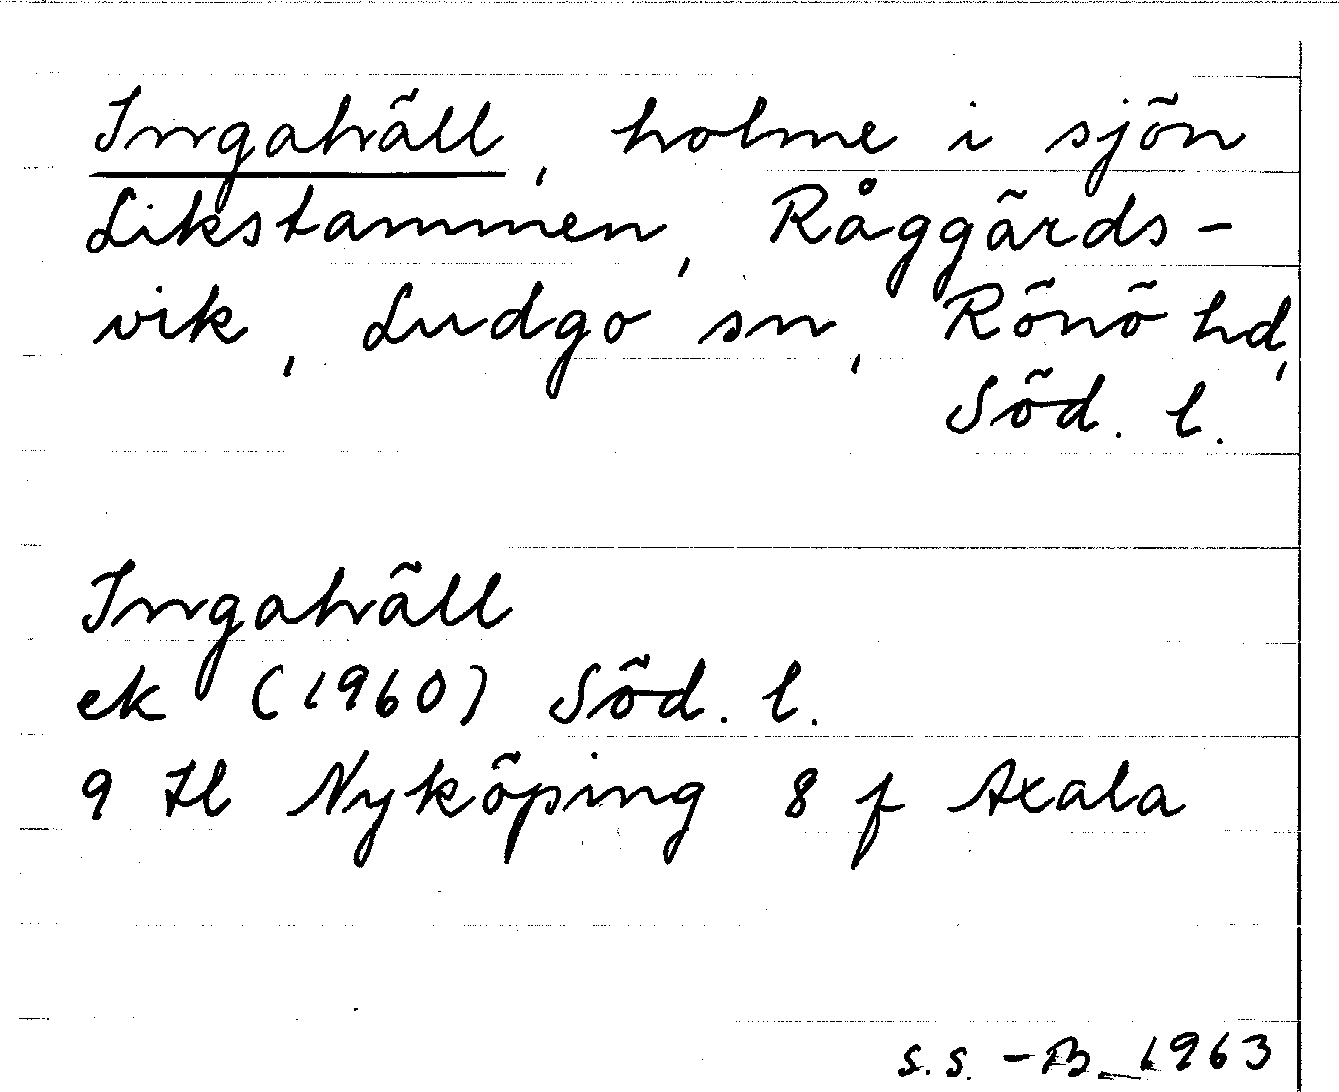 Ingahäll, holme i sjön
Likstammen, Råggärds-
vik, Ludgo sn, Rönö hd,
Söd. l.
Ingahäll
ek (1960) Söd. l.
9 Hl Nyköping 8 f Axala
S.S. -B_1963